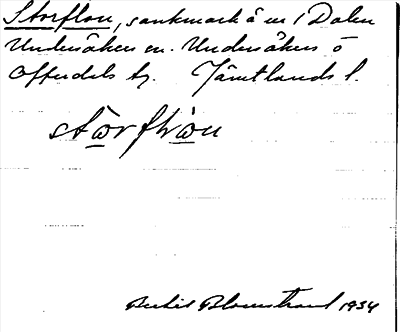 Storflon, sankmark å en i Dalen
Undersåkers sn. Undersåkers o
Offerdals tg. Jämtlands l.
stœrflœ́n
Bertil Blomstrand 1934